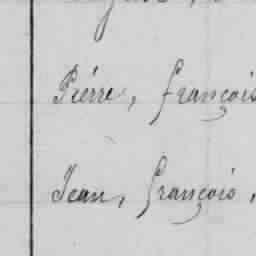 Pierre, françois
Jean, françois,